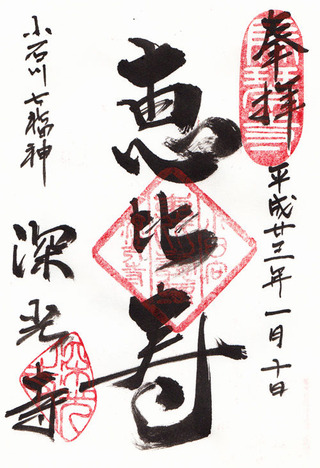 奉拝
平成廿三年一月十日
恵比寿
小石川七福神
深光寺